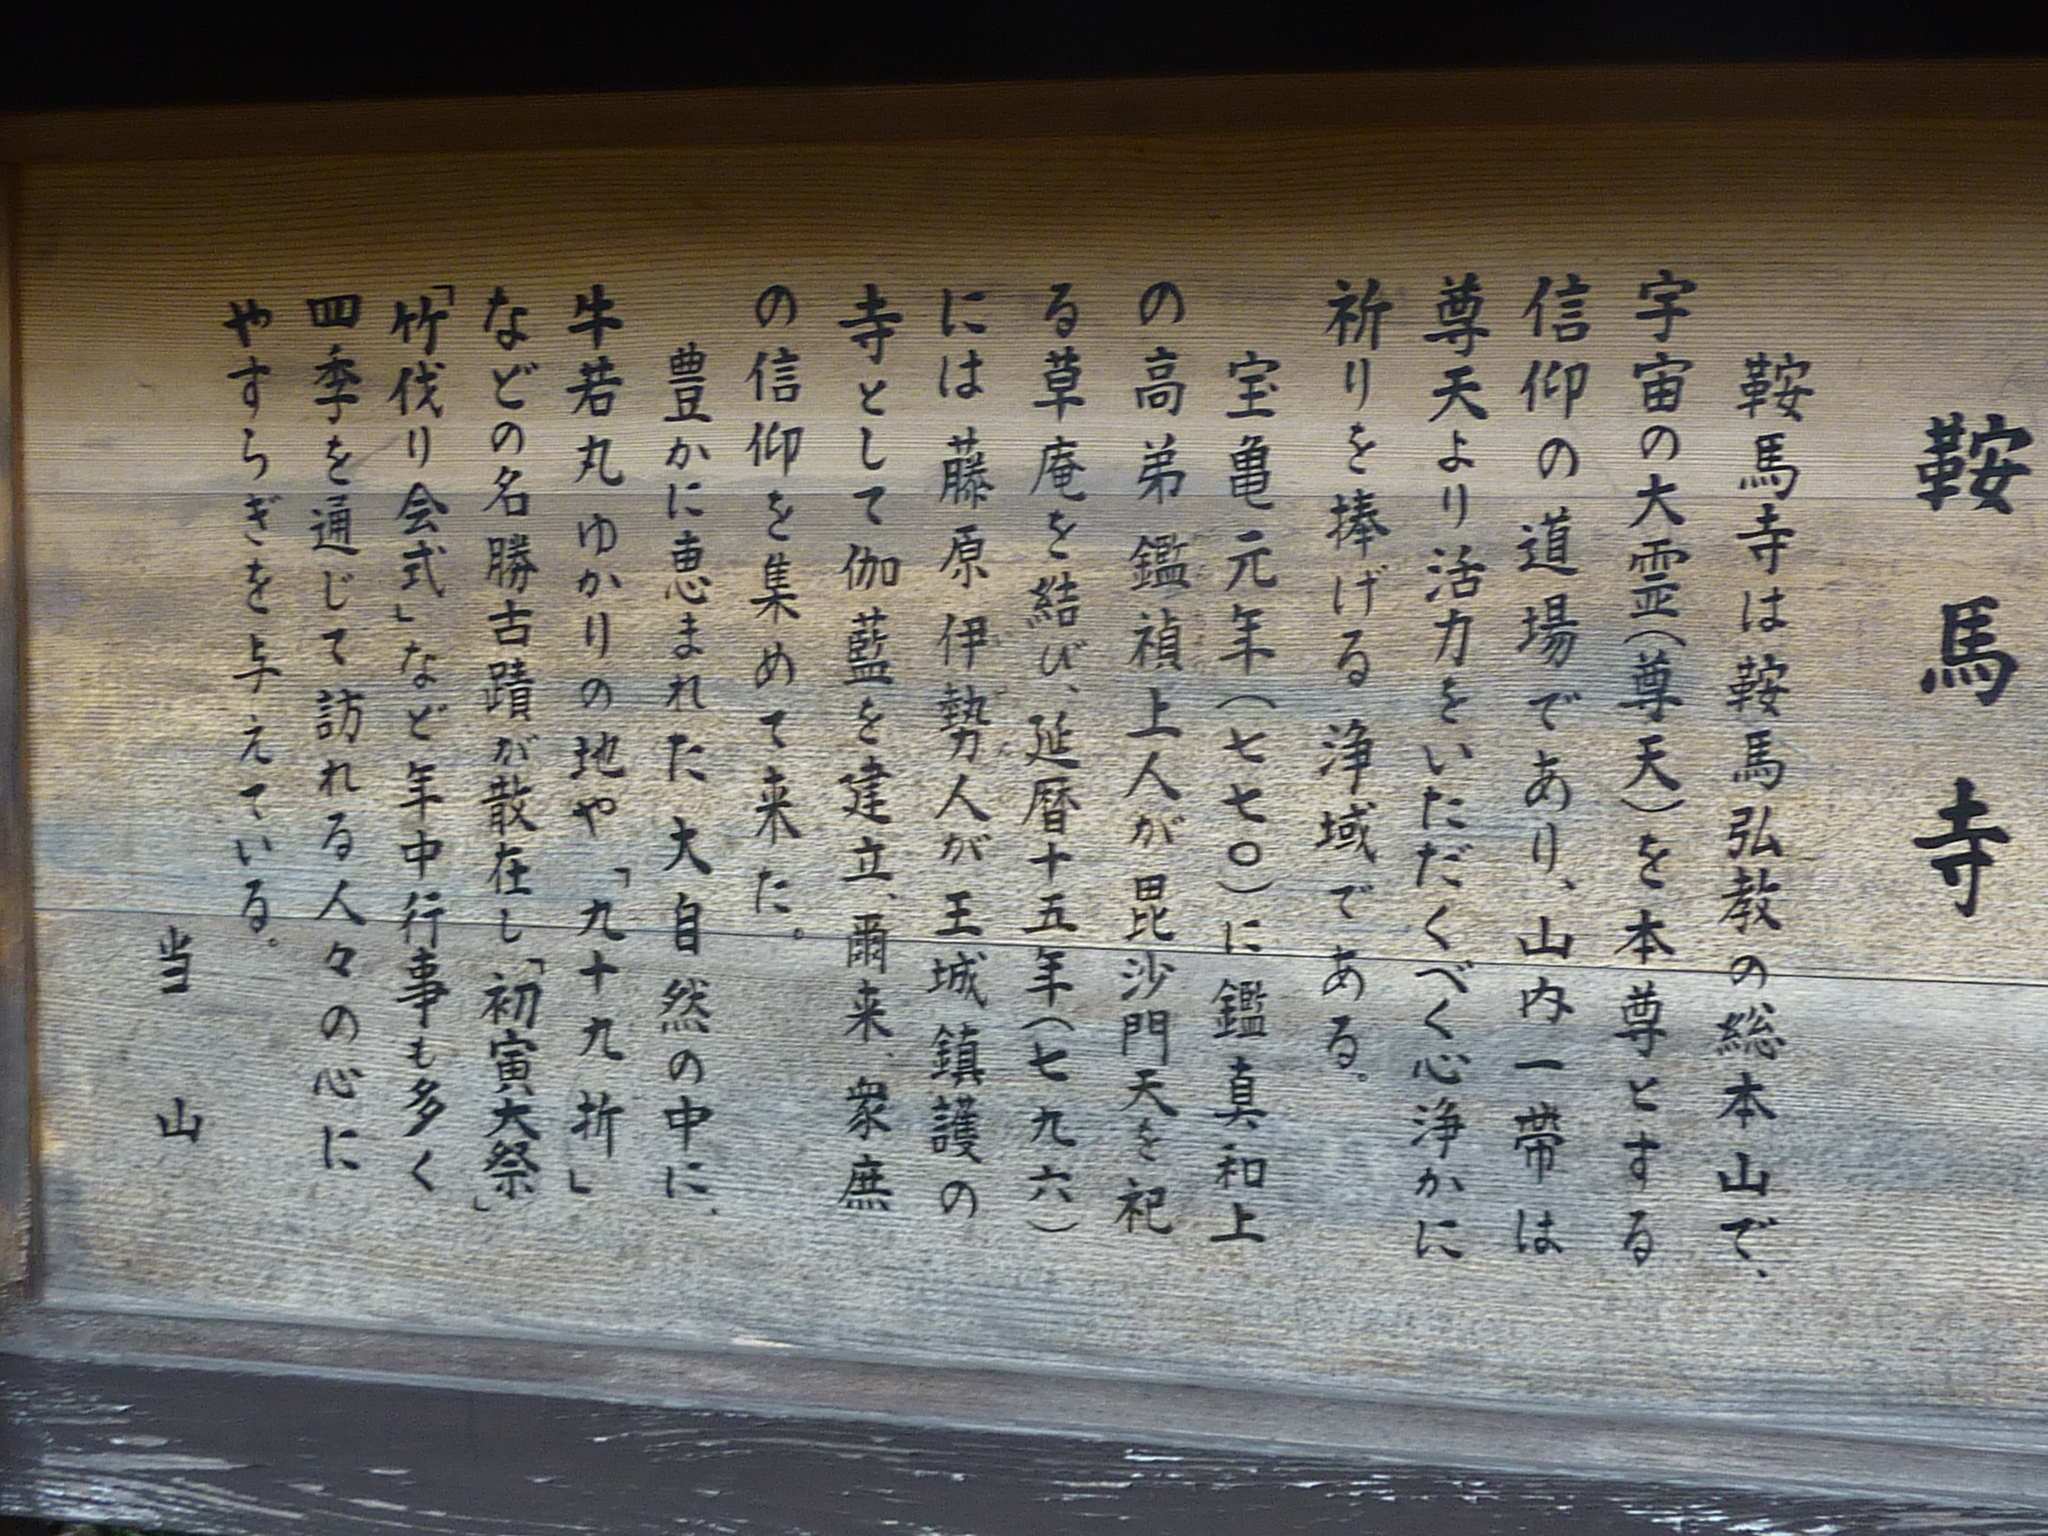 鞍馬寺
鞍馬寺は鞍馬弘教の総本山で、
宇宙の大霊（尊天）を本尊とする
信仰の道場であり、山内一帯は
尊天より活力をいただくべく心浄かに
祈りを捧げる浄域である。
宝亀元年（七七〇）に鑑真和上
の高弟鑑禎上人が毘沙門天を祀
る草庵を結び、延暦十五年（七九六）
には藤原伊勢人が王城鎮護の
寺として伽藍を建立、爾来、衆庶
の信仰を集めて来た。
豊かに恵まれた大自然の中に、
牛若丸ゆかりの地や「九十九折」
などの名勝古蹟が散在し「初寅大祭」
「竹伐り会式」など年中行事も多く
四季を通じて訪れる人々の心に
やすらぎを与えている。
当山